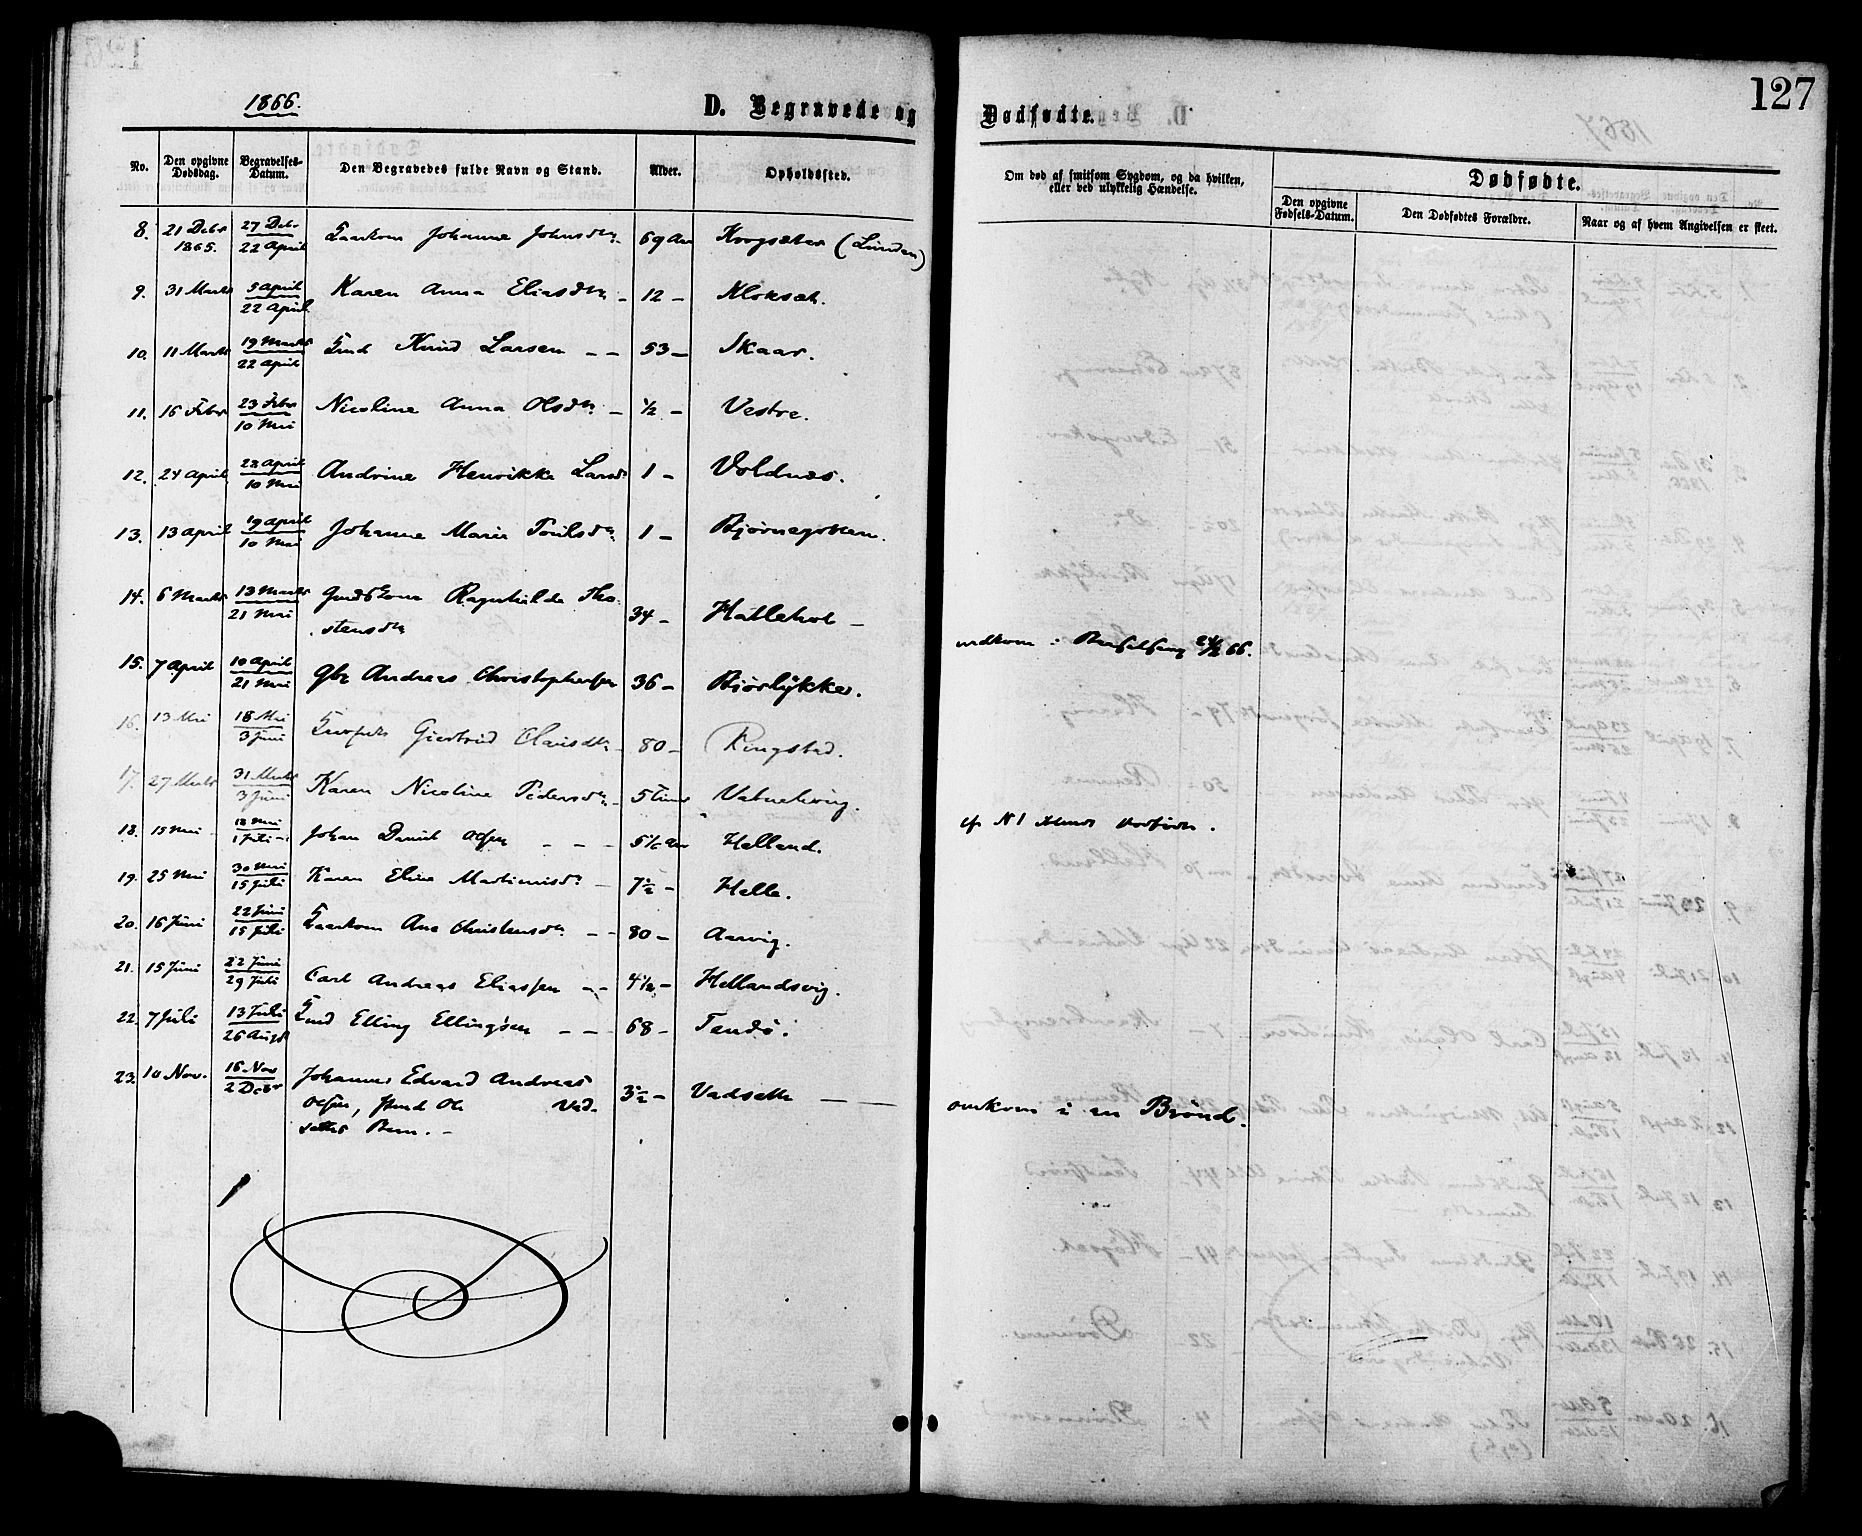 127
1866.
D. Begravede og Dødfødte.
No. Den opgivne Dødsdag. Begravelses-Datum. Den Begravedes fulde Navn og Stand. Alder. Opholdssted. Om død af smitsom Sygdom, og da hvilken, eller ved ulykkelig Hændelse. Dødfødte.
Den opgivne Fødsels-Datum. Den Dødfødtes Forældre. Naar og af hvem Angivelsen er skeet.
8. 21 Debr 1865. 27 Debr 22 April Johanne Johnsdtr 69 Aar (Lunden)
9. 31 Marts 5 April 22 April Karen Anna Eliasdtr - 12 - Kloksæt.
10. 11 Marts 19 Marts 22 April Knud Larsen - - 53 - Skaar.
11. 16 Febr 23 Febr 10 Mai Nicoline Anna Olsdtr - ½ - Vestre.
12. 24 April 28 April 10 Mai Andrine Henrikke Larsdr 1 - Voldnæs.
13. 13 April 19 April 10 Mai Johanne Marie 1 -
14. 6 Marts 13 Marts 21 Mai Ragnhilde Tho-
stensdtr 34 - Hatlehol -
15. 7 April 10 April 21 Mai Gbr Andreas Christophersen 36 - Bjørlykke. omkom i 24/2 66.
16. 13 Mai 18 Mai 3 Juni Giertrud Clausdtr - 80 - Ringstad.
17. 27 Marts 31 Marts 3 Juni Karen Nicoline Pedersdtr - 5 Timer Vatnehvig.
18. 15 Mai 18 Mai 1 Juli Johan Daniel Olsen - - - 5 1/6 Aar Helland. cfr N 1 Dødfødte.
19. 25 Mai 30 Mai 15 Juli Karen Eline Martinusdr - 7½ - Helle.
20. 16 Juni 22 Juni 15 Juli Ane - - 80 - Aarvig.
21. 15 Juni 22 Juni 29 Juli Carl Andreas Eliassen - - 4½ - Hellandsvig.
22. 7 Juli 13 Juli 26 Augst Elling Ellingsen - - - 68 - Tandø.
23. 10 Nov. 16 Nov 2 Debr Johannes Edvard Andreas
Olsen, Ole Vad-
sæters Barn. - 3½ - Vadsæth - - omkom i en Brønd.